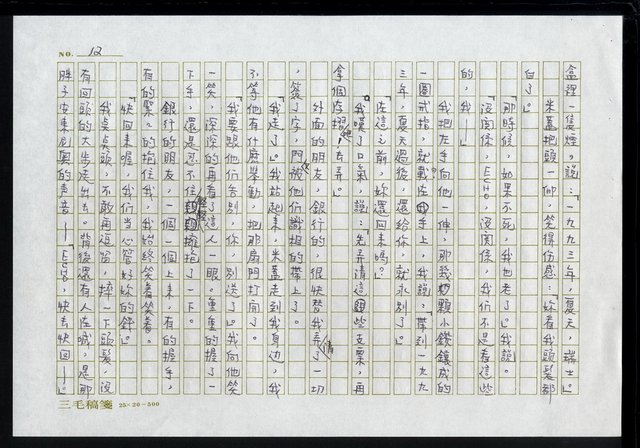 NO. 12
盒裡一隻煙，說：「一九九三年，夏天，瑞士。」
米蓋把頭一仰，笑得傷感：「妳看我頭髮都
白了。」
「那時候，如果不死，我也老了。」我說。
「沒關係，ECHO，沒關係，我們不是看這些
的，我——」
我把左手向他一伸，那幾顆小鑽鑲成的
一圈戒指，就戴在手上，我說：「帶到一九九
三年，夏天過後，還給你，就永別了。」
「在這之前，妳還回來嗎？」
我嘆了口氣，說：「先弄清這些支票，再
拿個存摺吧！去弄。」
外面的朋友，銀行的，很快替我弄清了一切
，簽了字，門被他們識相的帶上了。
「走了。」我站起來，米蓋走到我身邊，我
不等他有什麼舉動，把那扇門打開了。
「我要跟他們告別，你，別送了。」我向他笑
一笑，深深的再看了這人一眼。重重的握了一
下手，還是忍不住輕輕擁抱了一下。
銀行的朋友，一個一個上來，有的握手，
有的緊緊的抱住我，我始終笑著笑著。
「快回來喔，我們當心管好妳的錢。」
我點點頭，不敢再逗留，摔一下頭髮，沒
有回頭的大步走出去。背後還有人在喊，是那
胖子安東尼奧的聲音——「ECHO，快去快回——」。
三毛稿箋 25×20=500